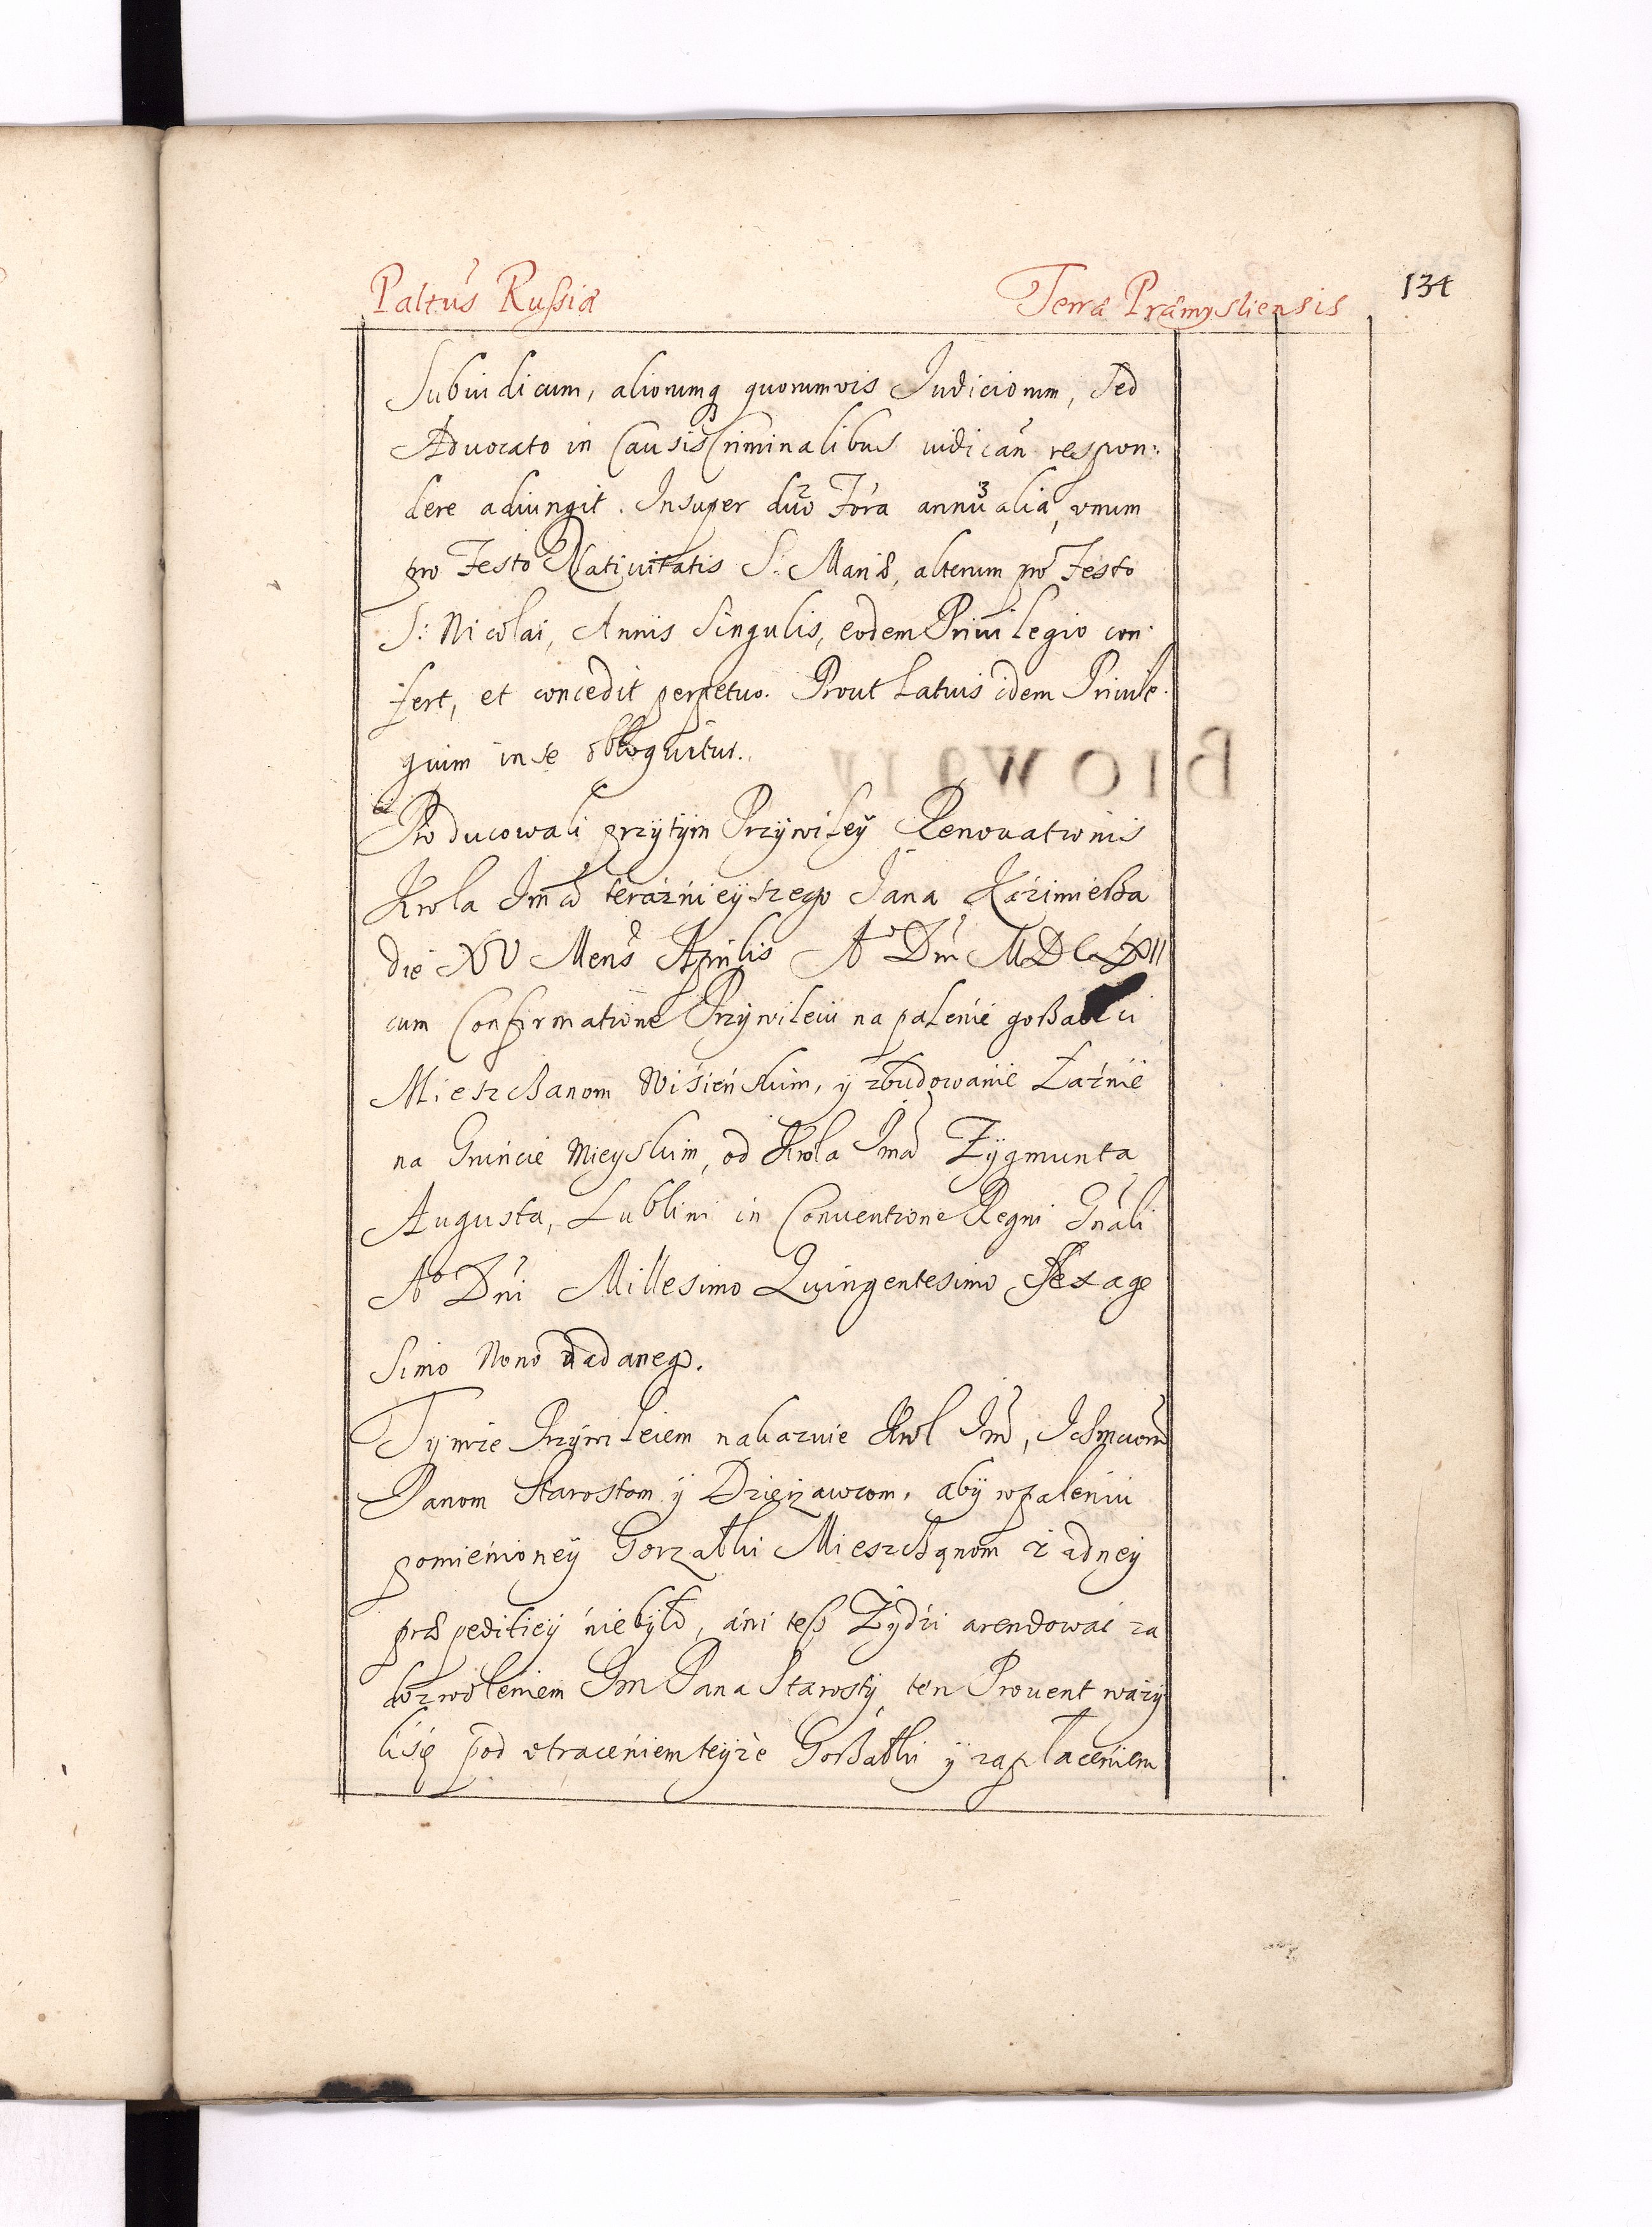 Paltus Russiæ Terræ Præmysliensis 134
Subiudicum, aliorumq quorumvis Iudiciorum, sed
Advocato in Causis Criminalibus iudican̄ respon:
dere adiungit. Insuper duo Fora annualia, vnum
pro Festo Natiuitatis S: Mariæ, alterum pro Festo
S: Nicolai, Annis Singulis, eodem Priuilegio con:
fert, et concedit perpetuo. Prout Latius idem Priuile:
gium in se obloquitur.
Producowali przytym Przywiley Renovationis
Krola Jm̄ci terazńieyszego Jana Kazimierza
die XV Mens Aprilis Aº Dni MDCLXII
cum Confirmatione Przywileiu na palenie goßałki
Mieszczanom Wisieńskim, y zbudowanie Łaźnie
na Gruncie Mieyskim, od Krola Jmci Zygmunta
Augusta, Lublini in Conventione Regni Gnali
Aº Dni Millesimo Quingentesimo Sexage
simo Nono nadanego.
Tymże Przywileiem nakazuie Krol Jmć, Ichmciom
Panom Starostom y Dzierzawcom, aby w paleniu
pomienioney Gorzałki Mieszczanom żadney
præpeditiey niebyło, ani teß Żydzi arendować za
dozwoleniem Jm Pana Starosty ten Prouent waży
li się pod vtraceniem teyże Goßałki y zapłaceniem